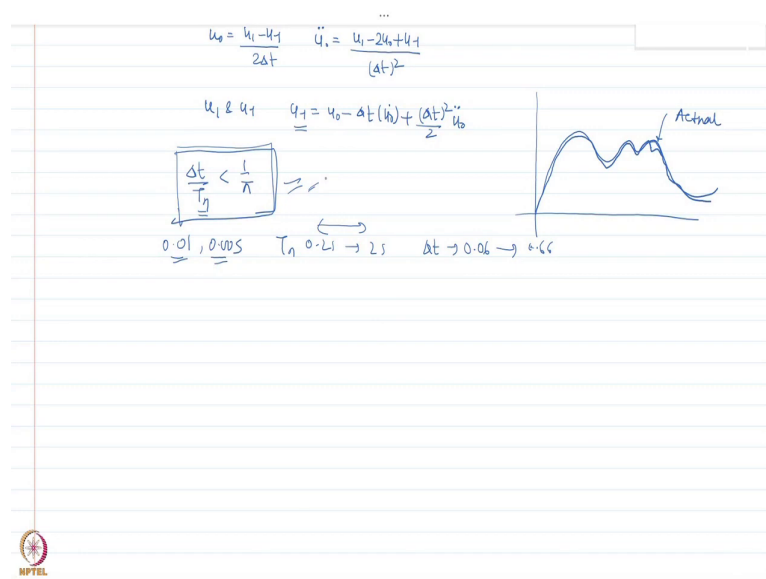 u₀ = (u₁ - u₋₁) / 2Δt    ü₀ = (u₁ - 2u₀ + u₋₁) / (Δt)²
u₁ & u₋₁    u₋₁ = u₀ - Δt(u̇₀) + (Δt)²/2 ü₀
Actual
Δt/Tₙ < 1/π
0.01, 0.005    Tₙ 0.2s → 2s    Δt → 0.06 → 0.66
NPTEL